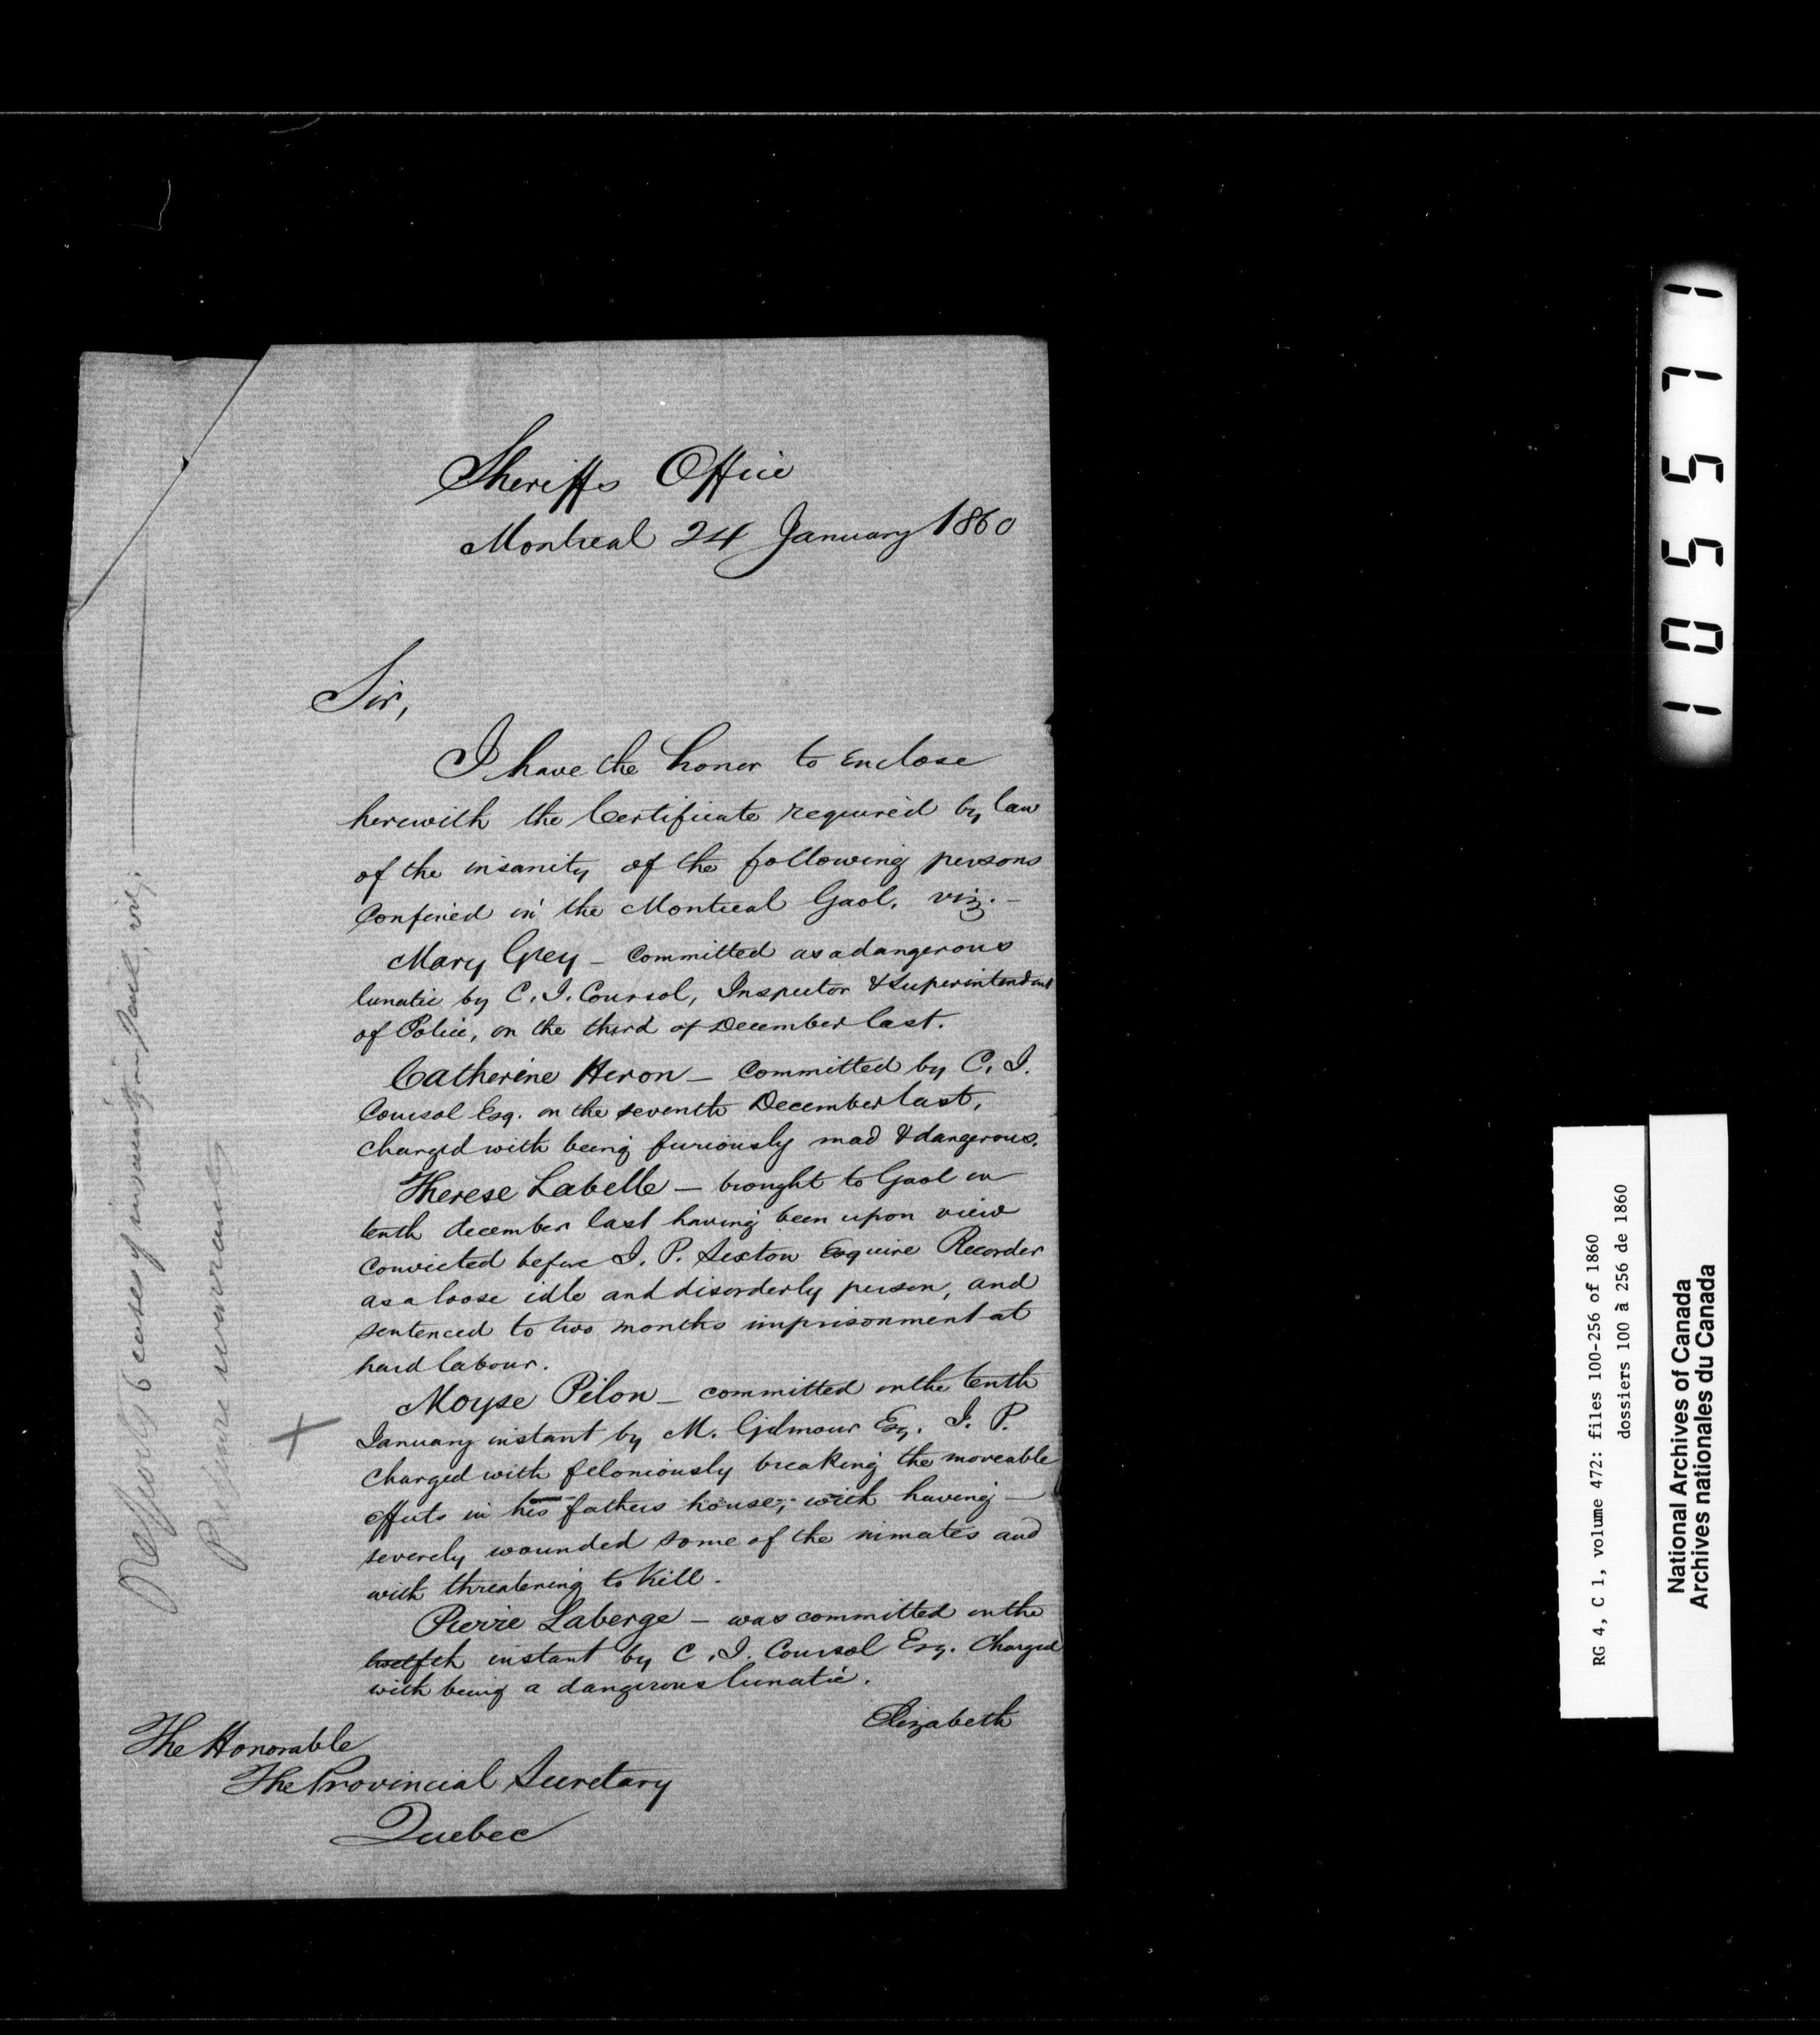 Sheriffs Office
Montreal 24 January 1860
Sir,
I have the honor to enclose
herewith the Certificate required by law
of the insanity of the following persons
Confined in the Montreal Gaol, viz. –
Mary Grey – Committed as a dangerous
lunatic by C. J. Coursol, Inspector & Superintendent
of Police, on the third of December last.
Catherine Heron – Committed by C. J.
Coursol Esq. on the seventh December last,
Charged with being furiously mad & dangerous.
Therese Labelle – brought to Gaol on
tenth december last having been upon view
Convicted before J. P. Sexton Esquire Recorder
as a loose idle and disorderly person, and
sentenced to two months imprisonment at
hard labour.
Moyse Pilon – committed on the tenth
January instant by M. Gilmour Esq. J. P.
Charged with feloniously breaking the moveable
effects in his fathers house, with having –
severely wounded some of the inmates and
with threatening to kill.
Pierre Laberge – was committed on the
twelfth instant by C. J. Coursol Esq. Charged
with being a dangerous lunatic.
Elizabeth
The Honorable
The Provincial Secretary
Quebec
Reports 6 cases of insanity in Gaol, viz:
X
105571
RG 4, C 1, volume 472: files 100-256 of 1860
dossiers 100 à 256 de 1860
National Archives of Canada
Archives nationales du Canada